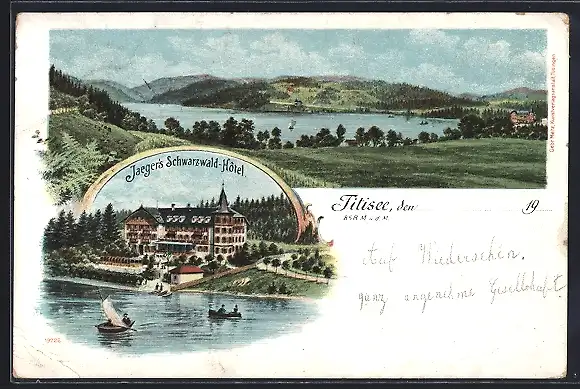 Jaeger's Schwarzwald-Hôtel
Titisee, den 19
858 M ü. d. M.
Auf Wiedersehen.
ganz angenehme Gesellschaft
Gebr. Metz, Kunstverlagsanstalt, Tübingen.